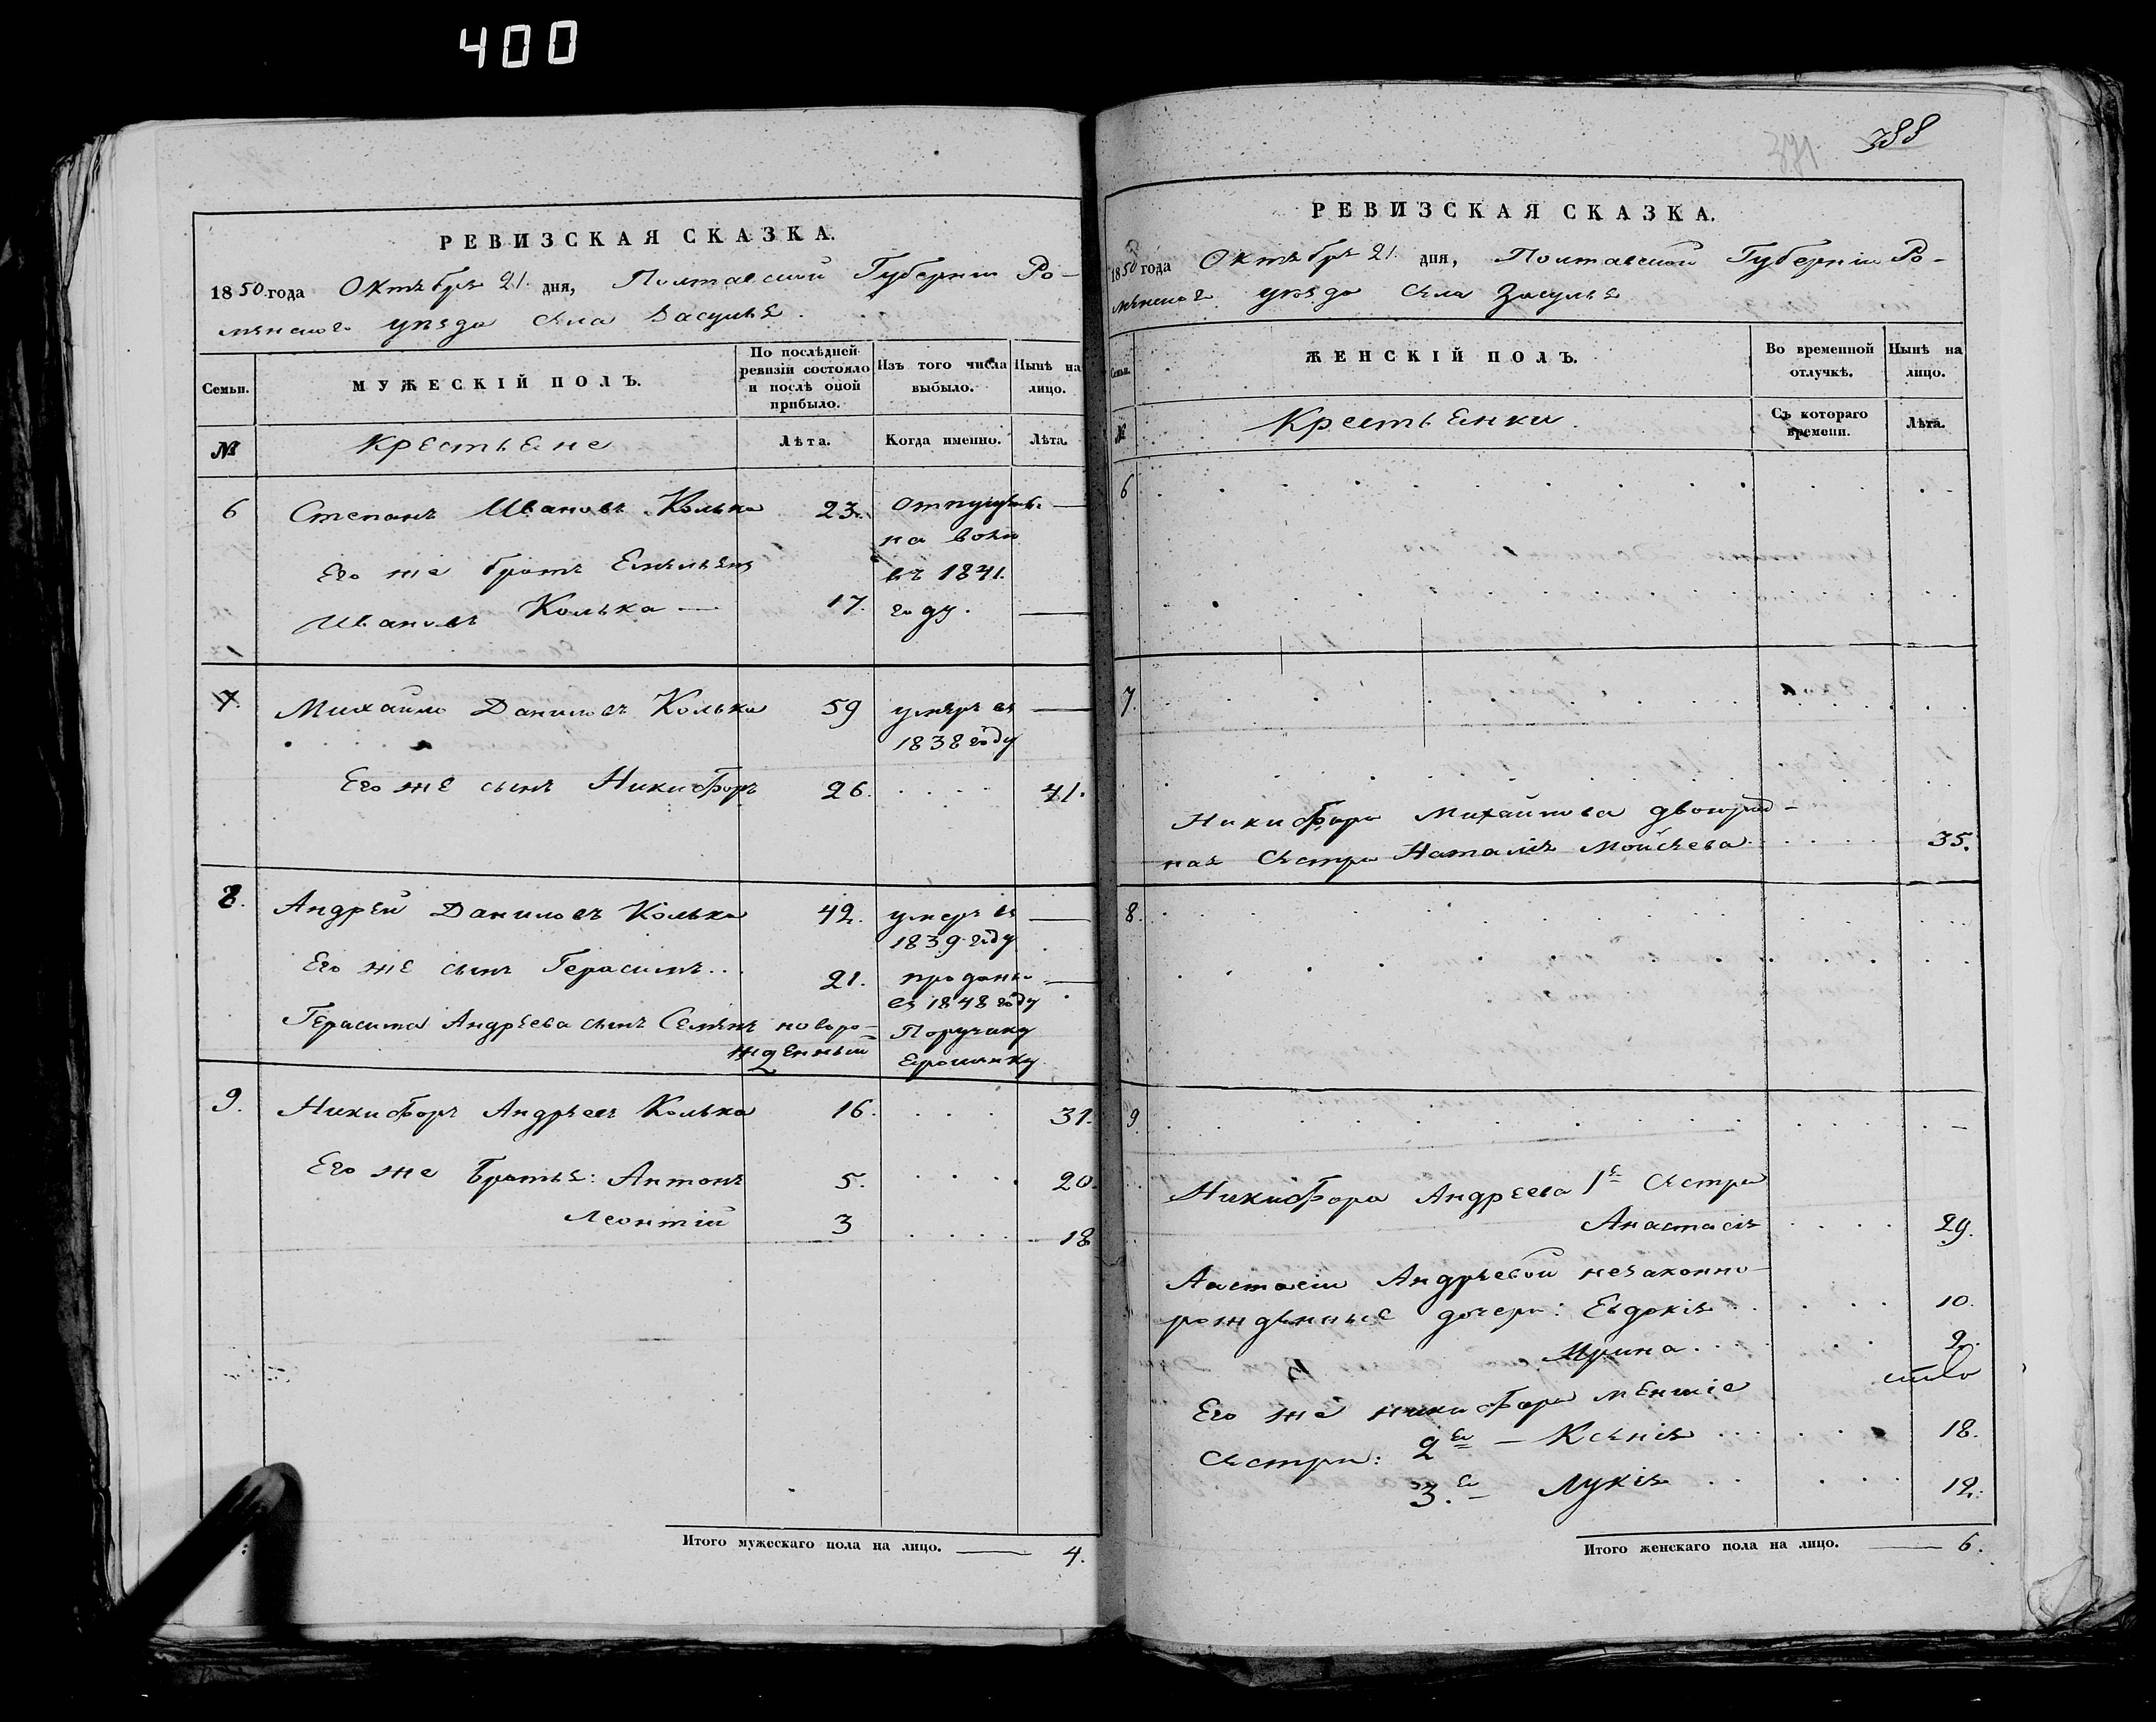 400
РЕВИЗСКАЯ СКАЗКА.
1850 года Октября 21. дня, Полтавской Губерніи Ро-
менского уезда села Засулья.
Семьи.
МУЖЕСКІЙ ПОЛЪ.
По послѣдней ревизіи состояло и послѣ оной прибыло.
Изъ того числа выбыло.
Нынѣ на лицо.
№
Крестьяне
Лѣта.
Когда именно.
Лѣта.
6 Степанъ Ивановъ Колька 23. отпущен. —
на волю
Его же братъ Емельянъ въ 1841.
Ивановъ Колька — 17. году. —
7. Михайло Даниловъ Колька 59 умеръ въ —
1838 году
Его же сынъ Никифоръ 26. 41.
8. Андрей Даниловъ Колька 42. умеръ въ —
1839 году
Его же сынъ Герасимъ 21. проданы —
въ 1848 году
Герасима Андреева сынъ Семенъ новоро- Поручику
жденный
9. Никифоръ Андреевъ Колька 16. 31.
Его же Братья: Антонъ 5. 20.
Леонтій 3 18
Итого мужескаго пола на лицо. — 4.
388
РЕВИЗСКАЯ СКАЗКА.
1850 года Октября 21. дня, Полтавской Губерніи Ро-
менского уезда села Засулья
Семьи.
ЖЕНСКІЙ ПОЛЪ.
Во временной отлучкѣ.
Нынѣ на лицо.
№
Крестьянки.
Съ котораго времени.
Лѣта.
6
7.
Никифора Михайлова двоюрод-
ная Сестра Наталія Мойсеева 35.
8.
9.
Никифора Андреева 1я Сестра
Анастасія 29.
Настасіи Андреевой незаконно-
рожденные дочери: Евдокія 10.
Ирина 9.
Его же Никифора меншіе
Сестры: 2я — Ксенія 18.
3.я — Лукія 12.
Итого женскаго пола на лицо. — 6.